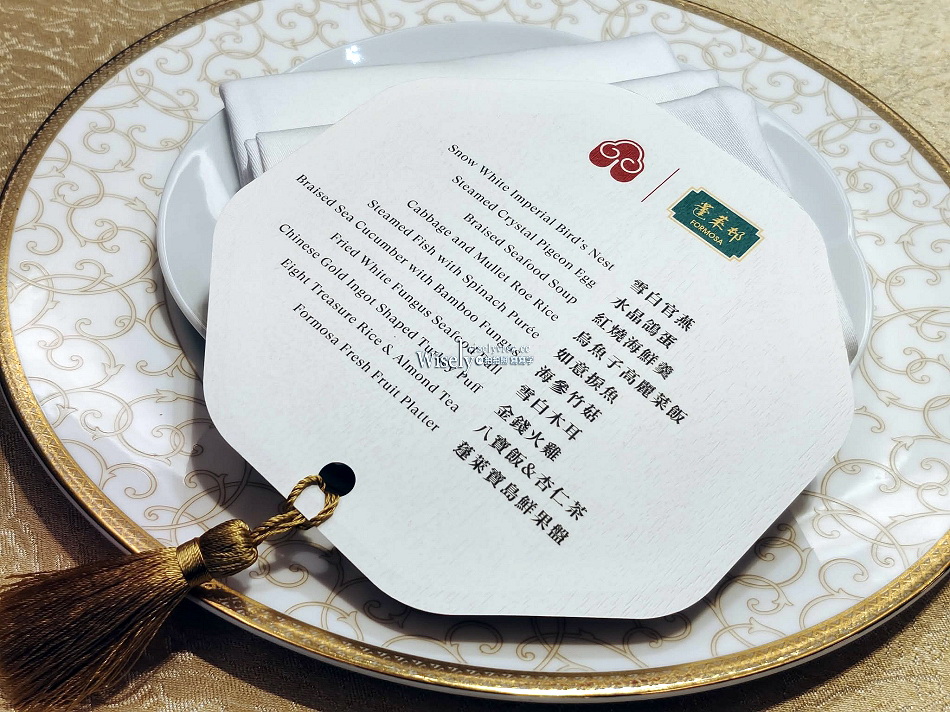 蓬萊邨
FORMOSA
Snow White Imperial Bird's Nest
Steamed Crystal Pigeon Egg
Braised Seafood Soup
Cabbage and Mullet Roe Rice
Steamed Fish with Spinach Purée
Braised Sea Cucumber with Bamboo Fungus
Fried White Fungus Seafood Roll
Chinese Gold Ingot Shaped Turkey Puff
Eight Treasure Rice & Almond Tea
Formosa Fresh Fruit Platter
雪白官燕
水晶鴿蛋
紅燒海鮮羹
烏魚子高麗菜飯
如意捩魚
海參竹菇
雪白木耳
金錢火雞
八寶飯&杏仁茶
蓬萊寶島鮮果盤
Wisely